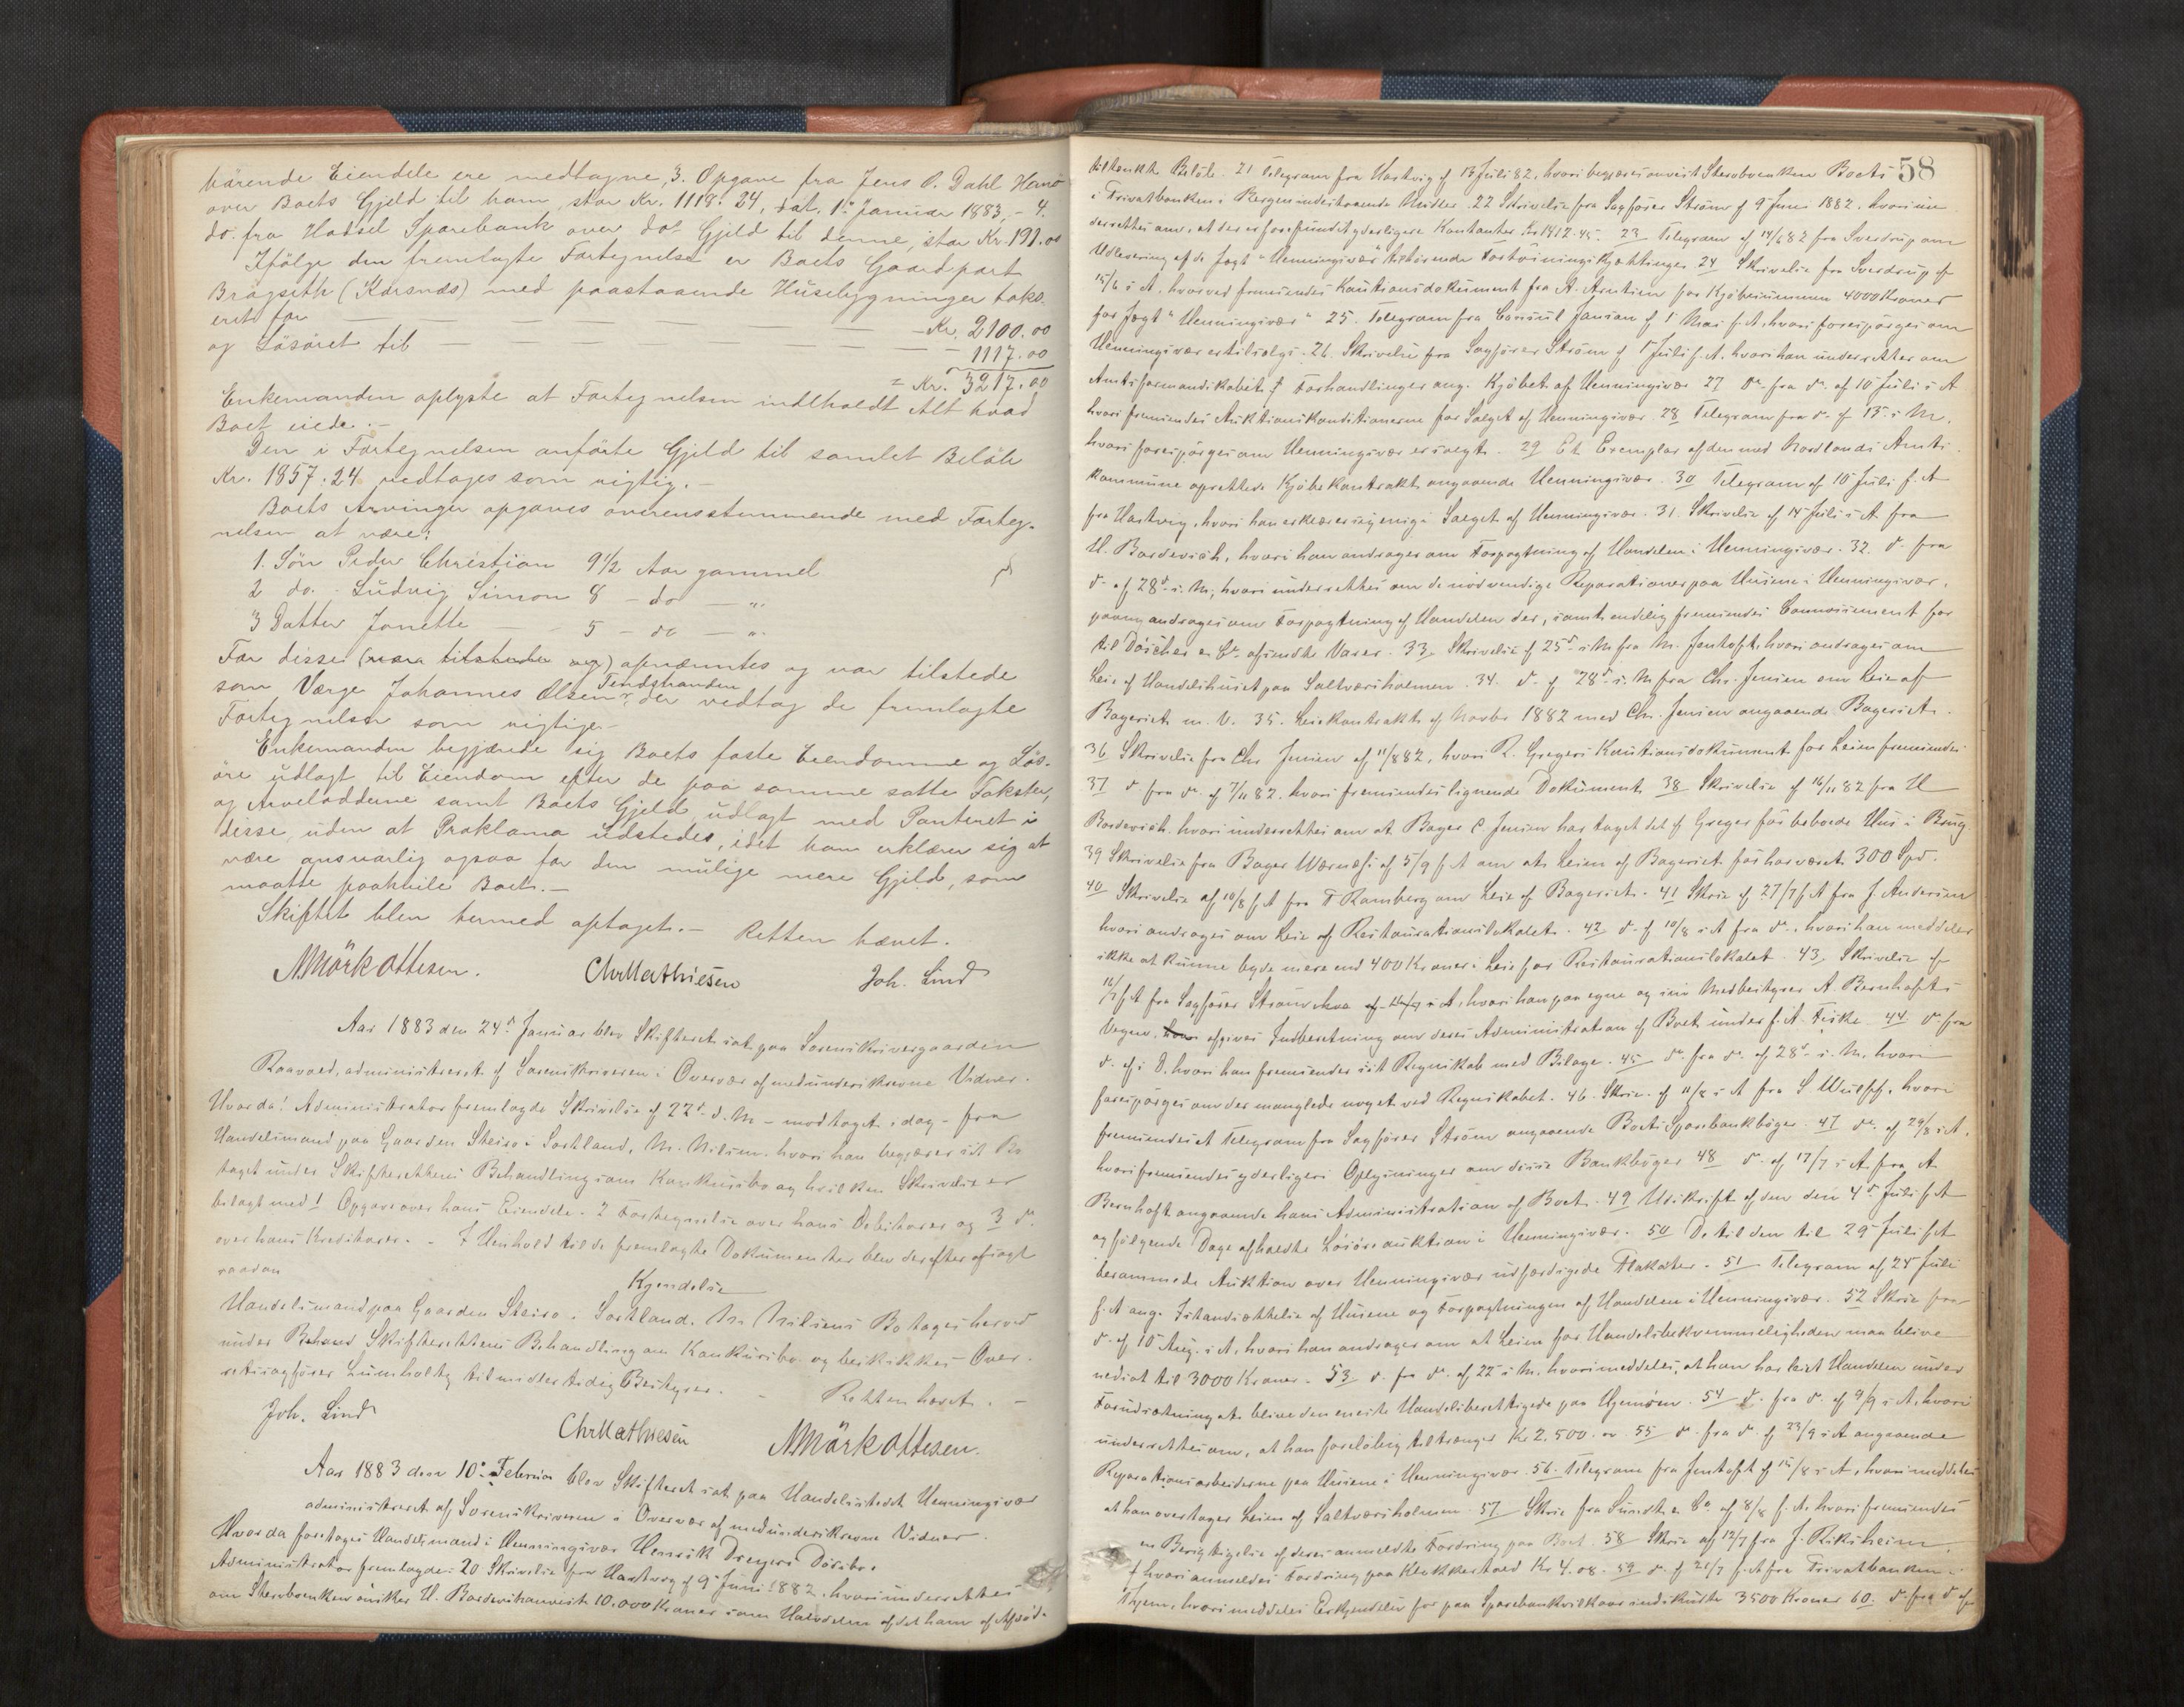 hörende Eiendele ere medtagne, 3. Opgave fra Jens P. Dahl Hernö
over Boets Gjeld til ham, stor Kr. 1118.24, dat. 1ste Januar 1883, - 4.
do. fra Hadsel Sparebank over do Gjeld til denne, stor Kr. 191.00
Ifölge den fremlagte Fortegnelse er Boets Gaardpart
Bragseth (Karsnæs) med paastaaende Husebygninger takse-
rete for — — — Kr. 2100.00
og Lösöret til — — — 1117.00
= Kr. 3217.00
Enkemanden oplyste at Fortegnelsen indeholdt Alt hvad
Boet eiede. -
Den i Fortegnelsen anförte Gjeld til samlet Belöb
Kr. 1857.24 vedtages som rigtig. -
Boets Arvinger opgaves overensstemmende med Forteg-
nelsen at være:
1. Sön Peder Christian 9 1/2 Aar gammel
2 do. - Ludvig Simon 8 - do - "
3 Datter Jonette - 5 - do - "
For disse (vare tilstede og) opnævntes og var tilstede
som Værge Johannes Olsen Tendstranden, der vedtog de fremlagte
Fortegnelser som rigtige. -
Enkemanden begjærede sig Boets faste Eiendomme og Lös-
öre udlagt til Eiendom efter de paa samme satte Takster,
og Arvelodderne samt Boets Gjeld udlagt med Panteret i
disse, uden at Proklama udstedes, idet han erklærer sig at
være ansvarlig ogsaa for den mulige mere Gjeld, som
maatte paahvile Boet. -
Skiftet blev hermed optaget. - Retten hævet.
NMörk Ottesen. Chr Mathiesen Joh. Lind
Aar 1883 den 24de Januar blev Skifteret sat paa Sorenskrivergaarden
administreret af Sorenskriveren i Overvær af medunderskrevne Vidner.
Hvorda: Administrator fremlagde Skrivelse af 22de d. M - modtaget i dag - fra
Handelsmand paa Gaarden Steiro i Sortland, M. Nilsen, hvori han begjærer sit Bo
taget under Skifterettens Behandling som Konkursbo og hvilken Skrivelse er
belagt med 1 Opgave over hans Eiendele. 2 Fortegnelse over hans Debitorer og 3 do.
over hans Kreditorer. - I Henhold til de fremlagte Dokumenter blev derefter afsagt
saadan
Kjendelse
Handelsmand paa Gaarden Steiro i Sortland, M. Nilsens Bo tages herved
under Skifterettens Behandling som Konkursbo og beskikkes Over-
retssagförer Lumholtz til midlertidig Bestyrer. - Retten hævet. -
Joh. Lind Chr Mathiesen NMörk Ottesen.
Aar 1883 den 10de Februar blev Skifteret sat paa Handelsstedet Henningsvær
administreret af Sorenskriveren i Overvær af medunderskrevne Vidner.
Hvorda foretoges Handelsmand i Henningsvær Henrik Dreyers Dödsbo.
Administrator fremlagde: 20 Skrivelse fra Hartvig af 9de Juni 1882, hvori underrettes
om Stervboenken önsker H. Bordevich anvist 10.000 Kroner som Halvdelen af det ham af Afdöde
58
tiltænkte Belöb. 21 Telegram fra Hartvig af 13 Juli 82, hvori begjæres anvist Stervboenken Boets
i Privatbanken i Bergen indestaaende Midler. 22 Skrivelse fra Sagförer Ström af 9de Juni 1882, hvori un-
derrettes om, at der er forefundet yderligere Kontanter Kr 1412.45. 23 Telegram af 14/6 82 fra Sverdrup om
Udlevering af de Jægt "Henningsvær" tilhörende Fortöiningskjættinger. 24 Skrivelse fra Sverdrup af
15/6 s. A. hvorved fremsendes Kautionsdokument fra A. Arntsen for Kjöbesummen 4000 Kroner
for Jægt "Henningsvær" 25. Telegram fra Consul Jansen af 1 Mai f. A. hvori forespörges om
Henningsvær er tilsalgs. 26. Skrivelse fra Sagförer Ström af 1 Juli f. A. hvori han underretter om
Amtsformandskabets Forhandlinger ang. Kjöbet af Henningsvær 27 do fra do. af 10 Juli s. A
hvori fremsendes Auktionskonditionerne for Salget af Henningsvær. 28 Telegram fra do. af 13. s. M.
hvori forespörges om Henningsvær er solgt. 29 Et Exemplar af den med Nordlands Amts-
kommune oprettede Kjöbekontrakt angaaende Henningsvær. 30 Telegram af 10 Juli f. A
fra Hartvig, hvori han erklærer sig enig i Salget af Henningsvær. 31. Skrivelse af 14 Juli s. A fra
H. Bordevich, hvori han andrager om Forpagtning af Handelen i Henningsvær. 32. do. fra
do. af 28de s. M, hvori underrettes om de nödvendige Reparationer paa Husene i Henningsvær,
paany andrages om Forpagtning af Handelen der, samt endelig fremsendes Connossement for
til Döscher & Co. afsendte Varer. 33. Skrivelse af 25de s. M fra M. Jentoft, hvori andrages om
Leie af Handelshuset paa Saltværsholmen. 34. do. af 28de s. M fra Chr. Jensen om Leie af
Bageriet m. V. 35. Leiekontrakt af Novbr 1882 med Chr. Jensen angaaende Bageriet.
36 Skrivelse fra Chr Jensen af 11/8 82, hvori R. Gregers Kautionsdokument for Leien fremsendes
37 do fra do. af 7/11 82. hvori fremsendes lignende Dokument. 38 Skrivelse af 16/11 82 fra H
Bordevich. hvori underrettes om at Bager C. Jensen har taget det af Greger för beboede Hus i Brug
39 Skrivelse fra Bager Wærnæs af 5/9 f. A om at Leien af Bageriet för har været 300 Spd.
40 Skrivelse af 10/8 f. A fra T Ramberg om Leie af Bageriet. 41 Skriv. af 27/7 f. A fra J. Andersen
hvori andrages om Leie af Restaurationslokalet. 42 do. af 10/8 s. A fra do., hvori han meddeler
ikke at kunne byde mere end 400 Kroner i Leie for Restaurationslokalet. 43. Skrivelse af
16/7 f. A fra Sagförer Ström hvori han paa egne og sin Medbestyrer A. Bernhofts
Vegne afgiver Indberetning om deres Administration af Boet under f. A. Fiske. 44 do fra
do. af s. D. hvori han fremsender sit Regnskab med Bilage. 45 do. fra do. af 28de s. M. hvori
forespörges om der manglede noget ved Regnskabet. 46. Skriv. af 11/8 s. A fra S Wulff, hvori
fremsendes et Telegram fra Sagförer Ström angaaende Boets Sparebankböger. 47 do. af 29/8 s. A.
hvori fremsendes yderligere Oplysninger om disse Bankböger. 48 do. af 17/7 s. A fra A.
Bernhoft angaaende hans Administration af Boet. 49 Udskrift af den den 4de Juli f. A
og fölgende Dage afholdte Lösöreauktion i Henningsvær. 50 De til den til 29 Juli f. A
berammede Auktion over Henningsvær udfærdigede Plakater. 51 Telegram af 24 Juli
f. A ang. Istandsættelse af Husene og Forpagtningen af Handelen i Henningsvær. 52 Skriv fra
do. af 10 Aug. s. A. hvori han andrager om at Leien for Handelsbekvemmeligheden maa blive
nedsat til 3000 Kroner. 53 do. fra do. af 22 s. M. hvori meddeles, at han har leiet Handelen under
Forudsætning at blive den eneste Handelsberettigede paa Hjemöen. 54 do. fra do. af 9/9 s. A. hvori
underrettes om, at han foreløbig tiltrænger Kr 2.500.00 55 do. fra do. af 23/9 s. A angaaende
Reparationsarbeiderne paa Husene i Henningsvær. 56. Telegram fra Jentoft af 15/8 s. A, hvori meddeles
at han overtager Leien af Saltværsholmen. 57 Skriv fra Sundt & Co. af 8/8 f. A. hvori fremsendes
en Berigtigelse af deres anmeldte Fordring paa Boet. 58 Skriv af 12/7 fra J. Riksheim,
hvori anmeldes Fordring paa Klokkertold Kr 4.08. 59 do. af 21/7 f. A fra Privatbanken i
Thjem, hvori meddeles Erkjendelse for paa Sparebankvilkaar indskudte 3500 Kroner 60. do. fra do af